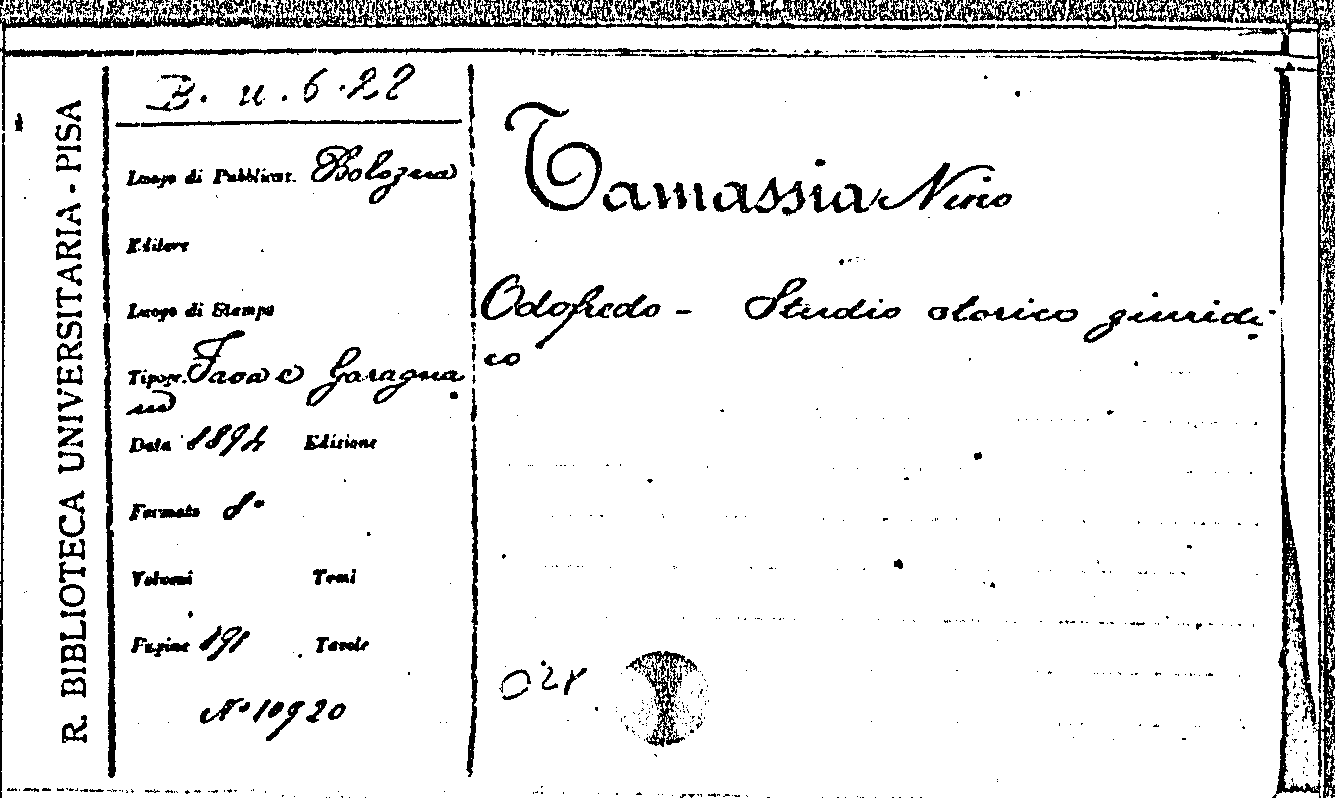 R. BIBLIOTECA UNIVERSITARIA - PISA
B. u. 6. 22
Luogo di Pubblicaz. Bologna
Editore
Luogo di Stampa
Tipogr. Fava e Garagna
ni
Data 1894 Edizione
Formato 8°
Volumi Tomi
Pagine 191 Tavole
N° 10920
Tamassia Nino
Odofredo - Studio storico giuridi-
co